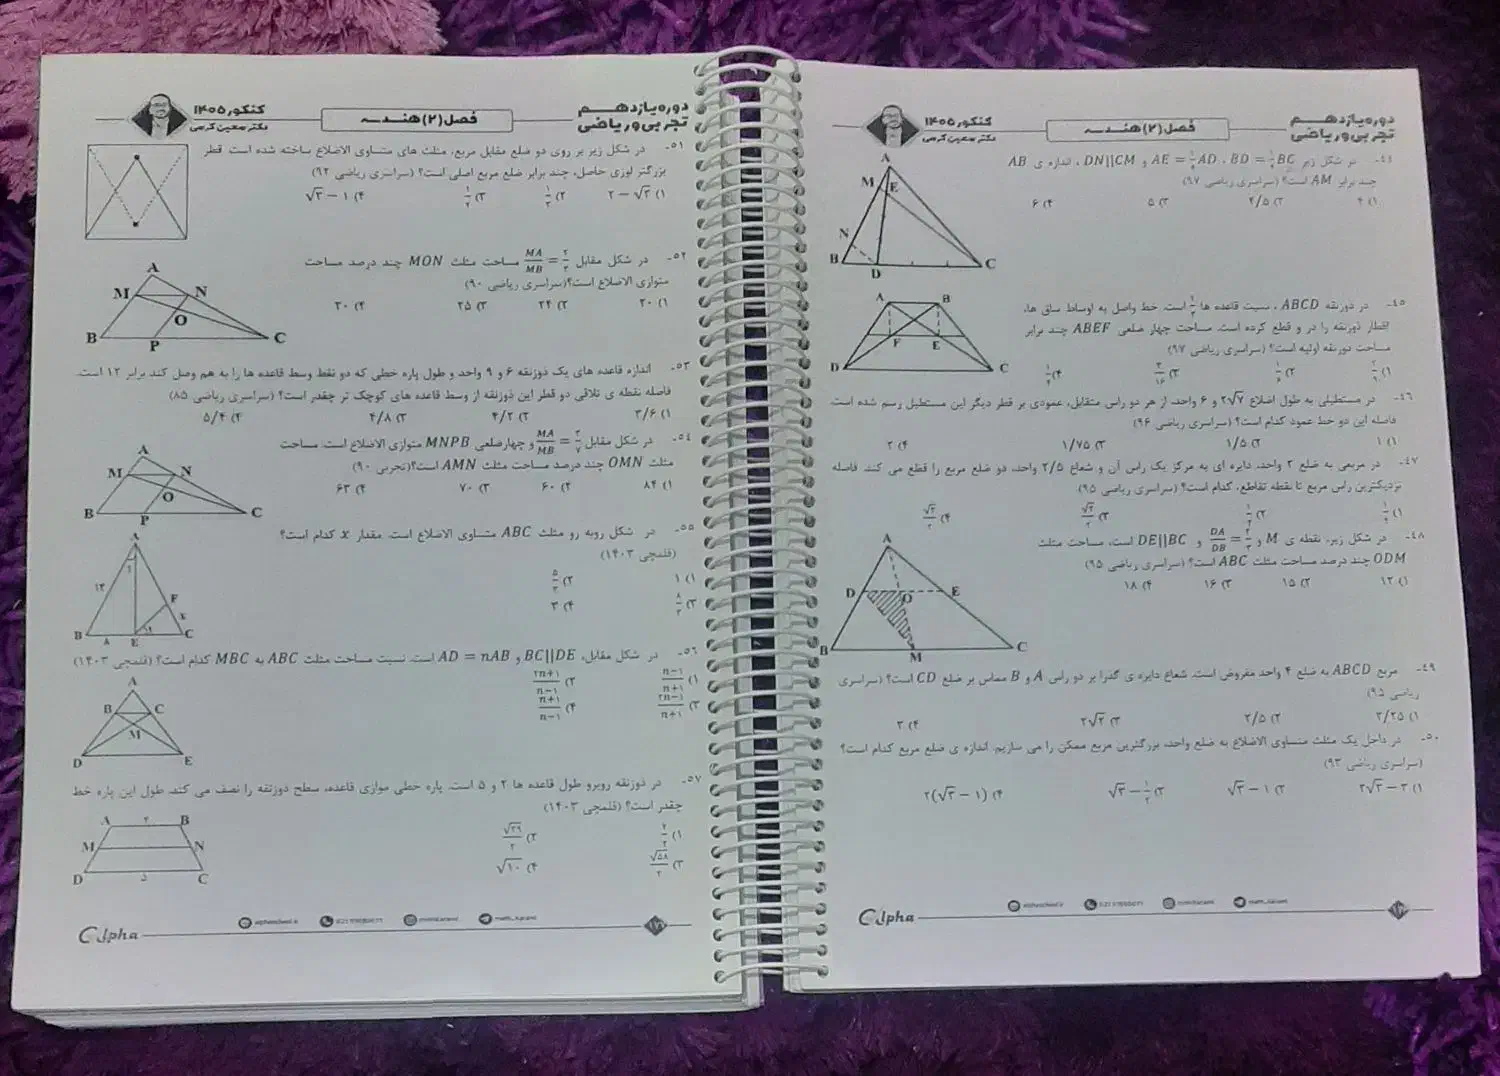 دوره یازدهم
تجربی و ریاضی
فصل (۲) هندسه
کنکور ۱۴۰۵
دکتر معین کرمی
۴۴- در شکل زیر BD = BC ، AE = AD و DN||CM ، اندازه ی AB
چند برابر AM است؟ (سراسری ریاضی ۹۷)
۱) ۴ ۲) ۴/۵ ۳) ۵ ۴) ۶
A
M E
N
B D C
۴۵- در ذوزنقه ABCD ، نسبت قاعده ها است. خط واصل به اوساط ساق ها،
اقطار ذوزنقه را در و قطع کرده است. مساحت چهار ضلعی ABEF چند برابر
مساحت ذوزنقه اولیه است؟ (سراسری ریاضی ۹۷)
A B
F E
D C
۴۶- در مستطیلی به طول اضلاع ۲√۷ و ۶ واحد، از هر دو راس متقابل، عمودی بر قطر دیگر این مستطیل رسم شده است.
فاصله این دو خط عمود کدام است؟ (سراسری ریاضی ۹۶)
۱) ۱ ۲) ۱/۵ ۳) ۱/۷۵ ۴) ۲
۴۷- در مربعی به ضلع ۲ واحد، دایره ای به مرکز یک راس آن و شعاع ۲/۵ واحد، دو ضلع مربع را قطع می کند. فاصله
نزدیکترین راس مربع تا نقطه تقاطع، کدام است؟ (سراسری ریاضی ۹۵)
۴۸- در شکل زیر، نقطه ی M و DA/DB = و DE||BC است، مساحت مثلث
ODM چند درصد مساحت مثلث ABC است؟ (سراسری ریاضی ۹۵)
۱) ۱۲ ۲) ۱۵ ۳) ۱۶ ۴) ۱۸
A
D O E
B M C
۴۹- مربع ABCD به ضلع ۴ واحد مفروض است. شعاع دایره ی گذرا بر دو راس A و B مماس بر ضلع CD است؟ (سراسری
ریاضی ۹۵)
۱) ۲/۲۵ ۲) ۲/۵ ۳) ۲√۲ ۴) ۳
۵۰- در داخل یک مثلث متساوی الاضلاع به ضلع واحد، بزرگترین مربع ممکن را می سازیم. اندازه ی ضلع مربع کدام است؟
(سراسری ریاضی ۹۳)
۱) ۲√۳ − ۳ ۲) √۳ − ۱ ۳) √۳ − ۱/۲ ۴) ۲(√۳ − ۱)
Alpha
دوره یازدهم
تجربی و ریاضی
فصل (۲) هندسه
کنکور ۱۴۰۵
دکتر معین کرمی
۵۱- در شکل زیر بر روی دو ضلع مقابل مربع، مثلث های متساوی الاضلاع ساخته شده است. قطر
بزرگتر لوزی حاصل، چند برابر ضلع مربع اصلی است؟ (سراسری ریاضی ۹۲)
۱) ۲ − √۳ ۲) ۱/۲ ۳) ۴) √۳ − ۱
۵۲- در شکل مقابل MA/MB = ۲/۳ مساحت مثلث MON چند درصد مساحت
متوازی الاضلاع است؟(سراسری ریاضی ۹۰)
۱) ۲۰ ۲) ۲۴ ۳) ۲۵ ۴) ۳۰
A
M N
O
B P C
۵۳- اندازه قاعده های یک ذوزنقه ۶ و ۹ واحد و طول پاره خطی که دو نقط وسط قاعده ها را به هم وصل کند برابر ۱۲ است.
فاصله نقطه ی تلاقی دو قطر این ذوزنقه از وسط قاعده های کوچک تر چقدر است؟ (سراسری ریاضی ۸۵)
۱) ۳/۶ ۲) ۴/۲ ۳) ۴/۸ ۴) ۵/۴
۵۴- در شکل مقابل MA/MB = ۳/۷ و چهارضلعی MNPB متوازی الاضلاع است. مساحت
مثلث OMN چند درصد مساحت مثلث AMN است؟(تجربی ۹۰)
۱) ۸۴ ۲) ۶۰ ۳) ۷۰ ۴) ۶۳
A
M N
O
B P C
۵۵- در شکل روبه رو مثلث ABC متساوی الاضلاع است. مقدار x کدام است؟
(قلمچی ۱۴۰۳)
۱) ۱ ۲) ۵/۲ ۳) ۸/۳ ۴) ۳
A
۱۲
F
x
B ۸ E C
۵۶- در شکل مقابل، BC||DE و AD = nAB است. نسبت مساحت مثلث ABC به MBC کدام است؟ (قلمچی ۱۴۰۳)
۱) n−۱/n+۱ ۲) ۲n+۱/n−۱
۳) ۲n−۱/n+۱ ۴) n+۱/n−۱
A
B C
M
D E
۵۷- در ذوزنقه روبرو طول قاعده ها ۲ و ۵ است. پاره خطی موازی قاعده، سطح ذوزنقه را نصف می کند. طول این پاره خط
چقدر است؟ (قلمچی ۱۴۰۳)
۱) ۷/۲ ۲) √۲۹/۲
۳) √۵۸/۲ ۴) √۱۰
A ۲ B
M N
D ۵ C
Alpha